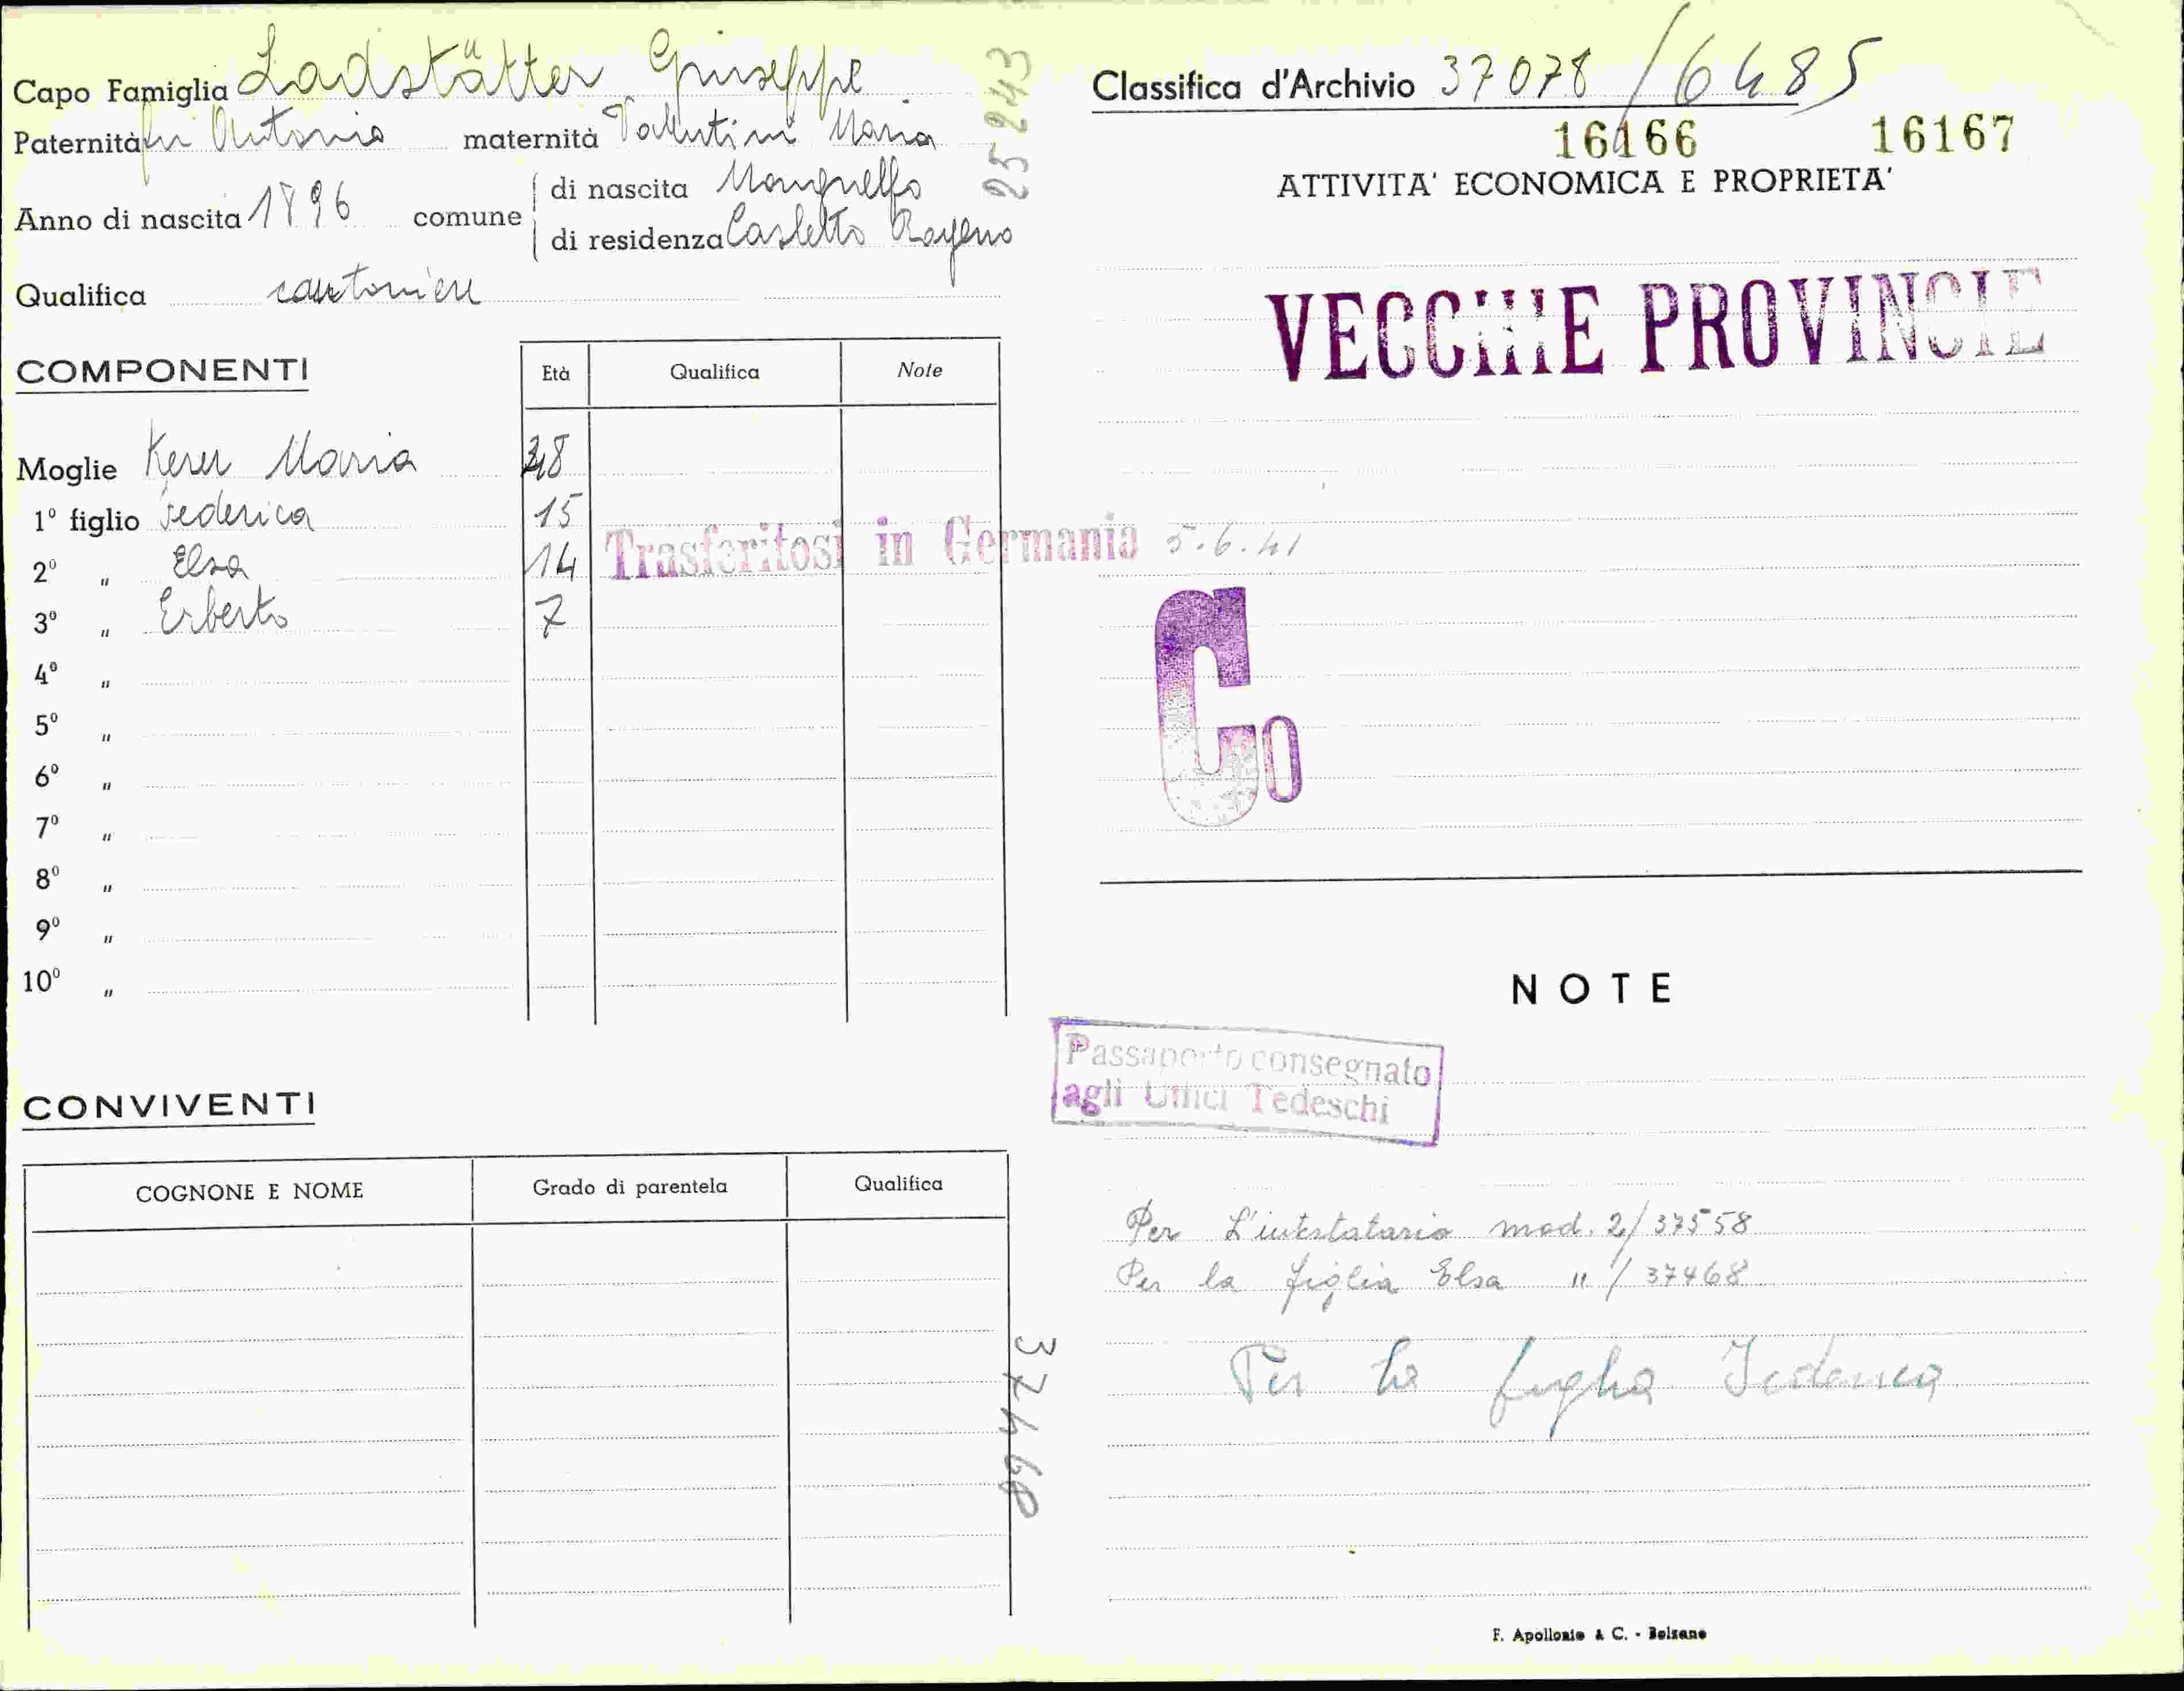 Capo Famiglia Ladstätter Giuseppe
Paternità fu Antonio maternità Maria
Anno di nascita 1896 comune di nascita Monguelfo
di residenza Casletto Rogeno
Qualifica cantoniere
25243
COMPONENTI
Età Qualifica Note
Moglie Kerer Maria 38
1º figlio Federica 15
2º " Elsa 14
Trasferitosi in Germania 5.6.41
3º " Erberto 7
4º "
5º "
6º "
7º "
8º "
9º "
10º "
CONVIVENTI
COGNONE E NOME Grado di parentela Qualifica
37468
Classifica d'Archivio 37078/6485
16166 16167
ATTIVITA' ECONOMICA E PROPRIETA'
VECCHIE PROVINCIE
Co
NOTE
Passaporto consegnato
agli Uffici Tedeschi
Per L'intestatario mod. 2/37558
Per la figlia Elsa " / 37468
Per la figlia Federica
F. Apollonio & C. - Bolzano